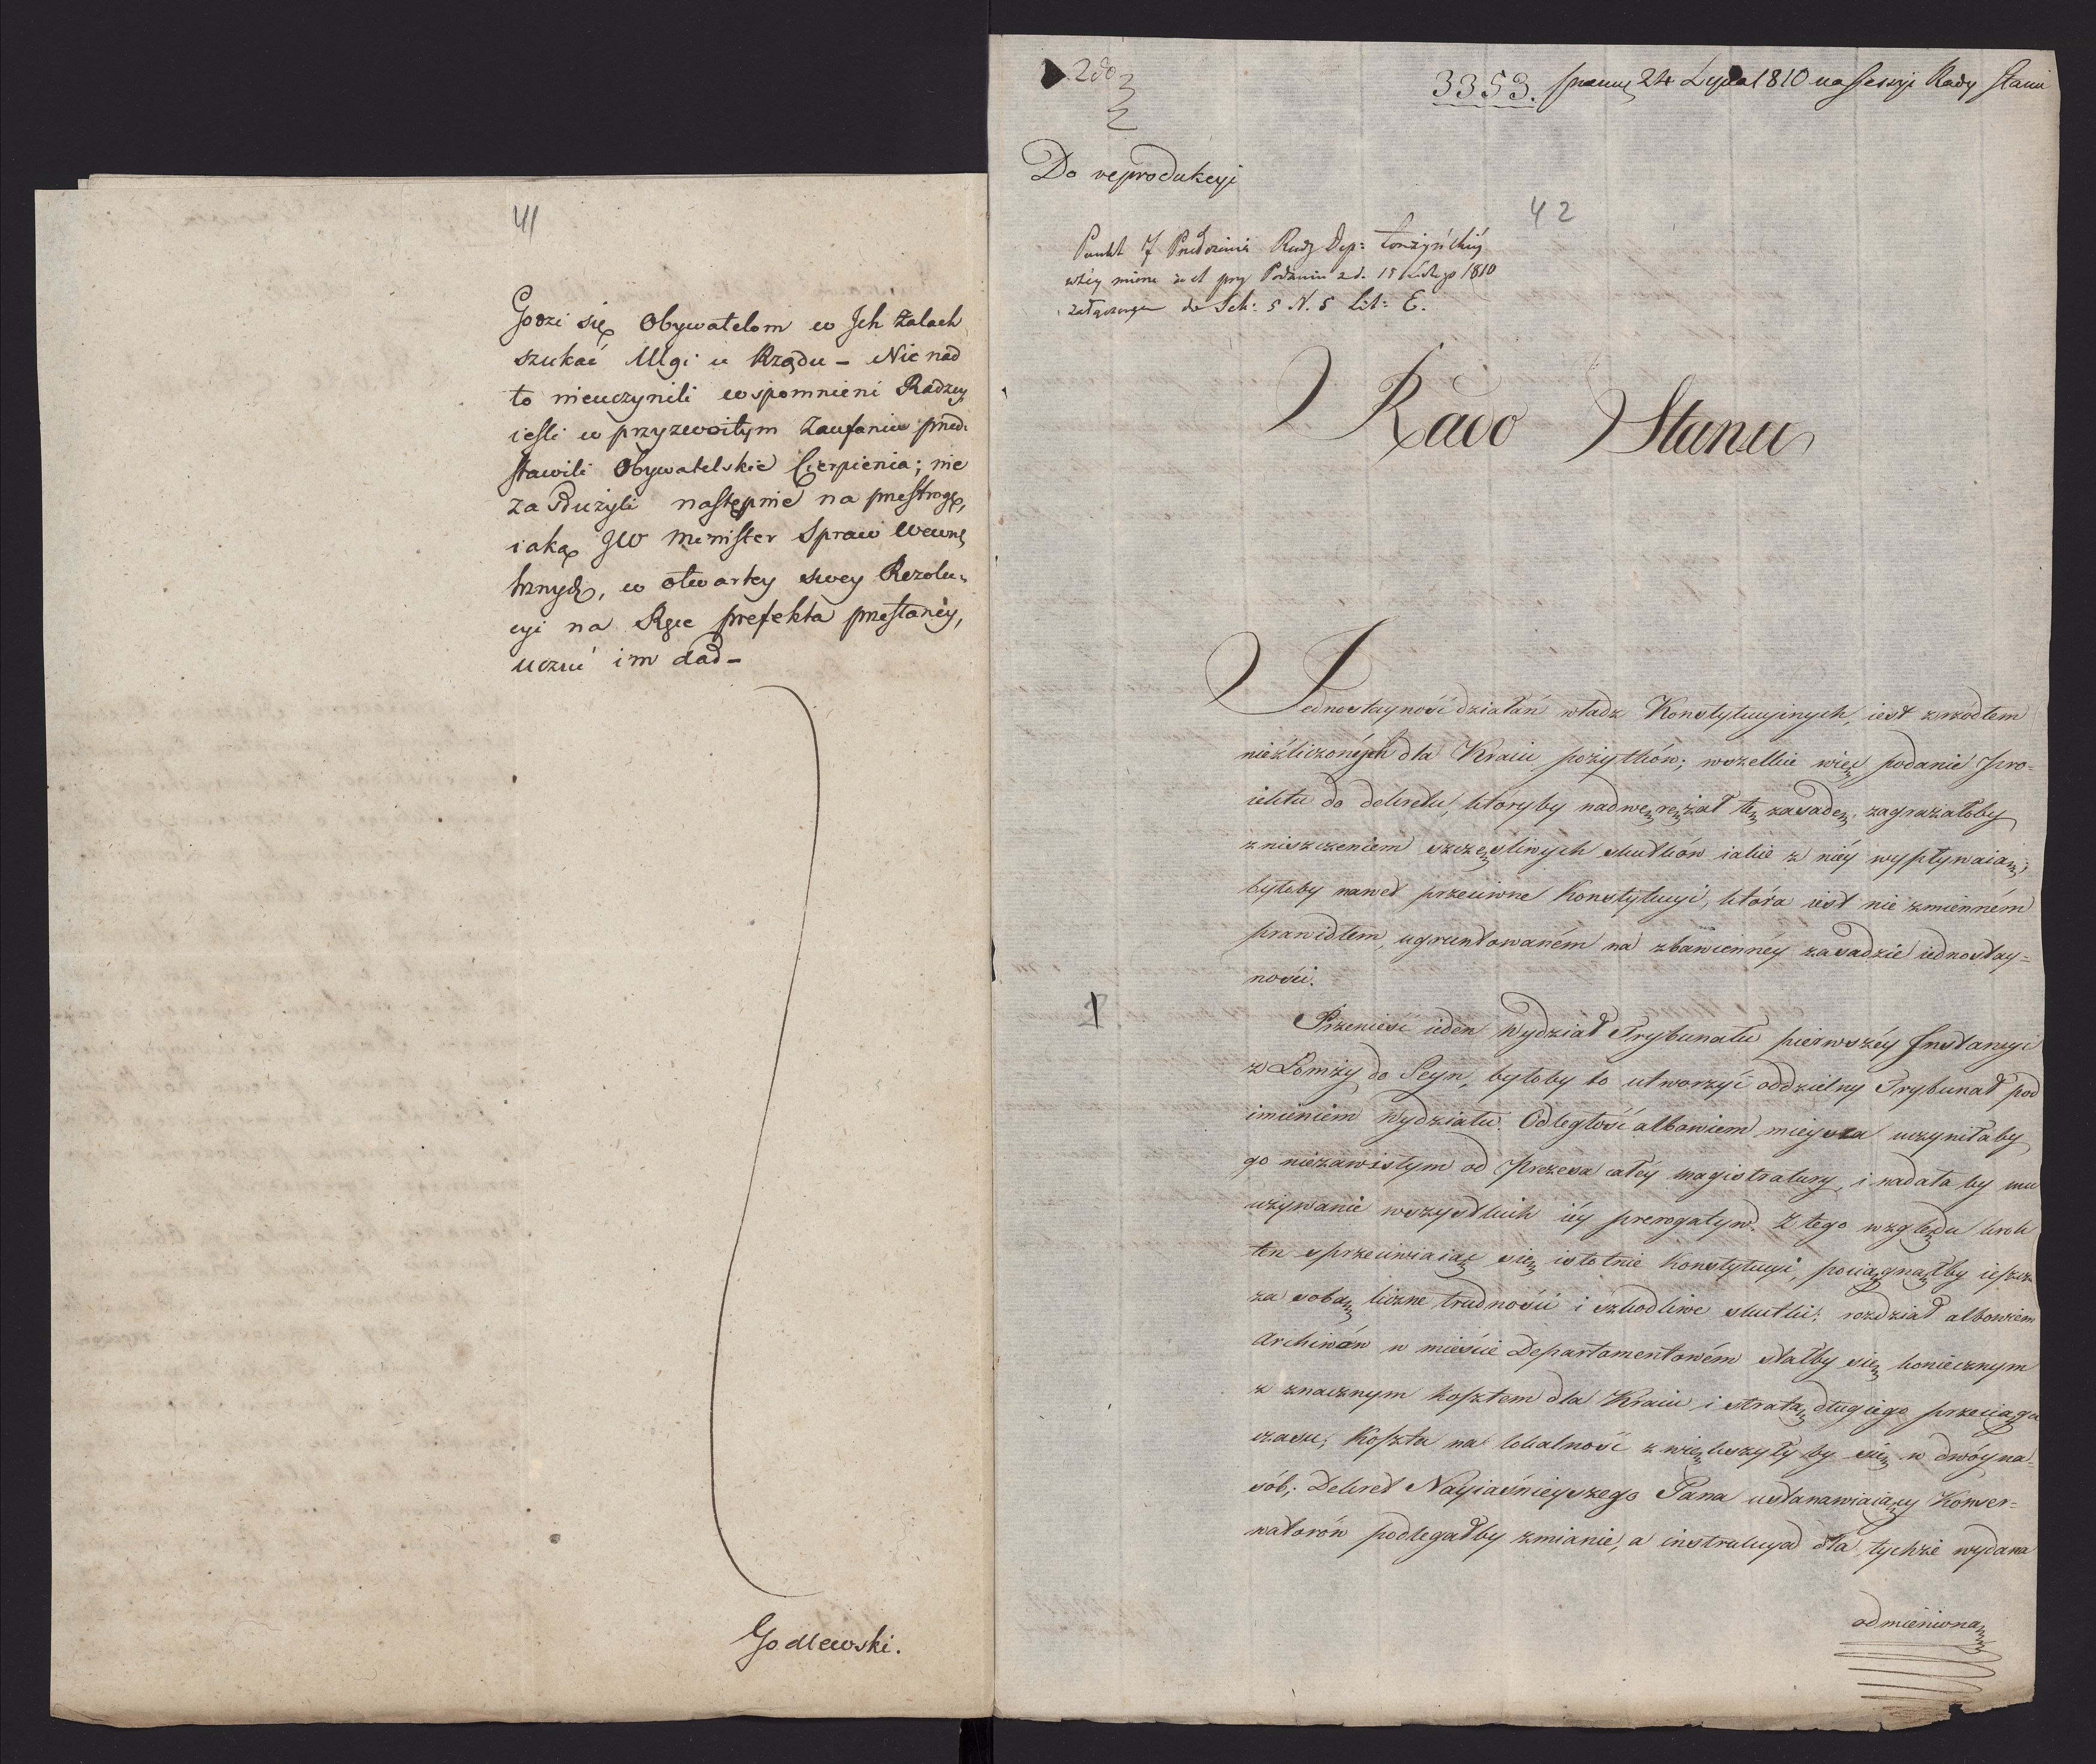 41
Godzi się Obywatelom w Ich żalach
szukać Ulgi u Rządu – Nic nad
to nieuczynili wspomnieni Radzcy,
ieśli w przyzwoitym Zaufaniu przed:
stawili Obywatelskie Cierpienia; nie
zasłużyli następnie na przestrogę,
iaką JW Minister Spraw Wewnę
trznych, w otwartey swey Rezolu:
cyi na Ręce prefekta przesłaney,
uczuć im dał –
Godlewski.
2do
3353. 24 Lipca 1810 na Sessyi Rady Stanu
Do reprodukcyi
42
Punkt 7 Rady Dep: Łomżyńskiey
przy Podaniu z d. 15 Lutego 1810
do Sek: 5 N. 5 Lit: E.
Rado Stanu
Jednostayność działań władz Konstytucyinych, iest zrzódłem
niezliczonych dla Kraiu pożytków; wszelkie więc podanie pro=
iektu do dekretu, któryby nadwerężał tę zasadę, zagrażałoby
zniszczeniem szczęśliwych skutków iakie z niéy wypływaią;
byłoby nawet przeciwne Konstytucyi, która iest nie zmienném
prawidłem, ugruntowaném na zbawiennéy zasadzie iednostay=
ności.
1
Przenieść ieden Wydział Trybunału pierwszéy Instancyi
z Łomży do Seyn, byłoby to utworzyć oddzielny Trybunał pod
imieniem Wydziału. Odległość albowiem mieysca uczyniłaby
go niezawisłym od Prezesa całéy magistratury, i nadała by mu
używanie wszystkich iéy prerogatyw. Z tego względu krok
ten sprzeciwiaiąc się istotnie Konstytucyi, pociągnąłby ieszcze
za sobą liczne trudności i szkodliwe skutki; rozdział albowiem
Archiwów w mieście Departamentowém stałby się koniecznym
z znacznym kosztem dla Kraiu i stratą długiego przeciągu
czasu; Koszta na lokalność zwiększyły by się w dwóyna=
sób; Dekret Nayiaśnieyszego Pana ustanawiaiący Konser=
watorów podlegałby zmianie, a instrukcya dla tychże wydana
odmienioną